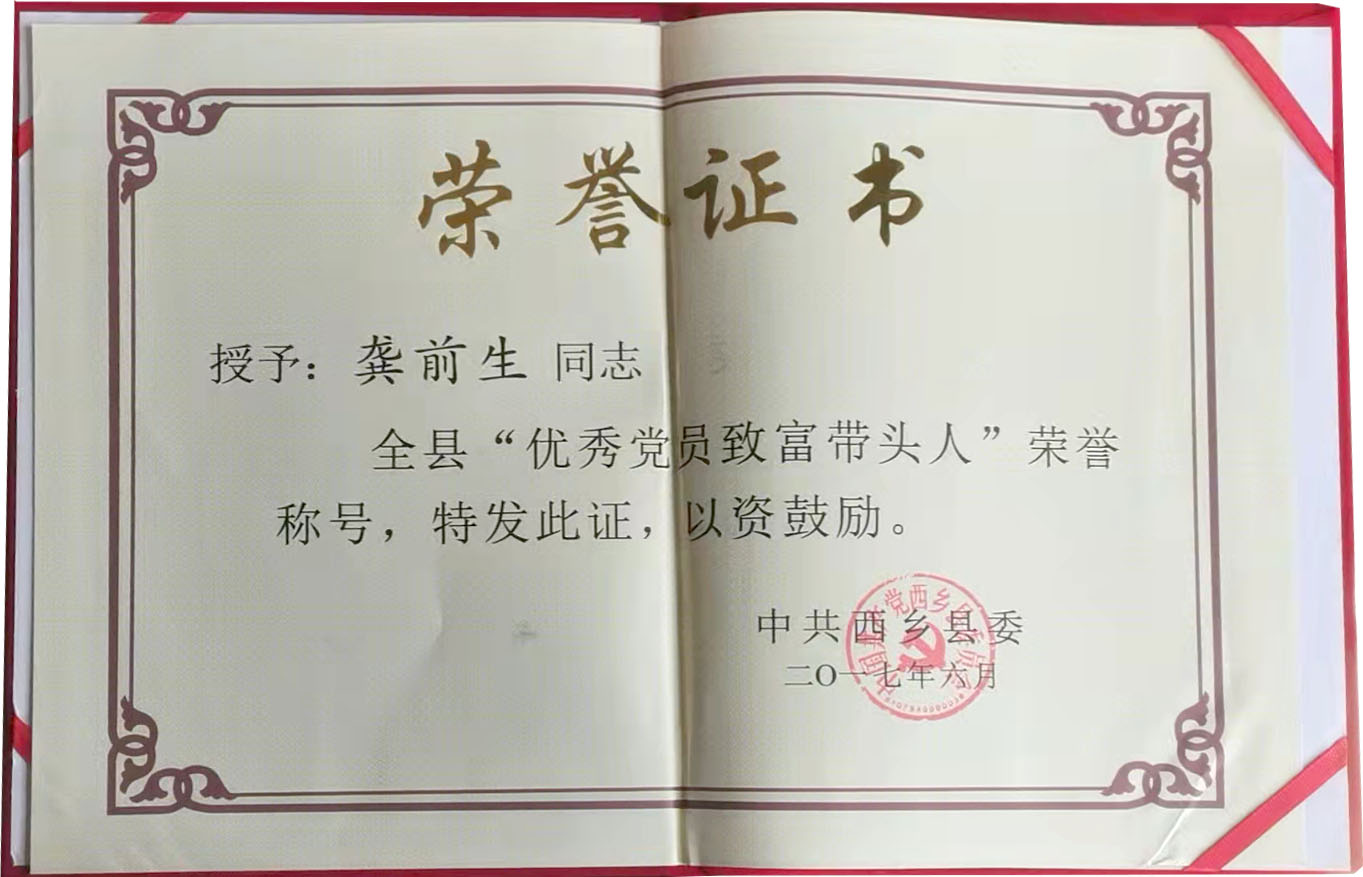 荣誉证书
授予：龚前生 同志
全县“优秀党员致富带头人”荣誉
称号，特发此证，以资鼓励。
中共西乡县委
二〇一七年六月